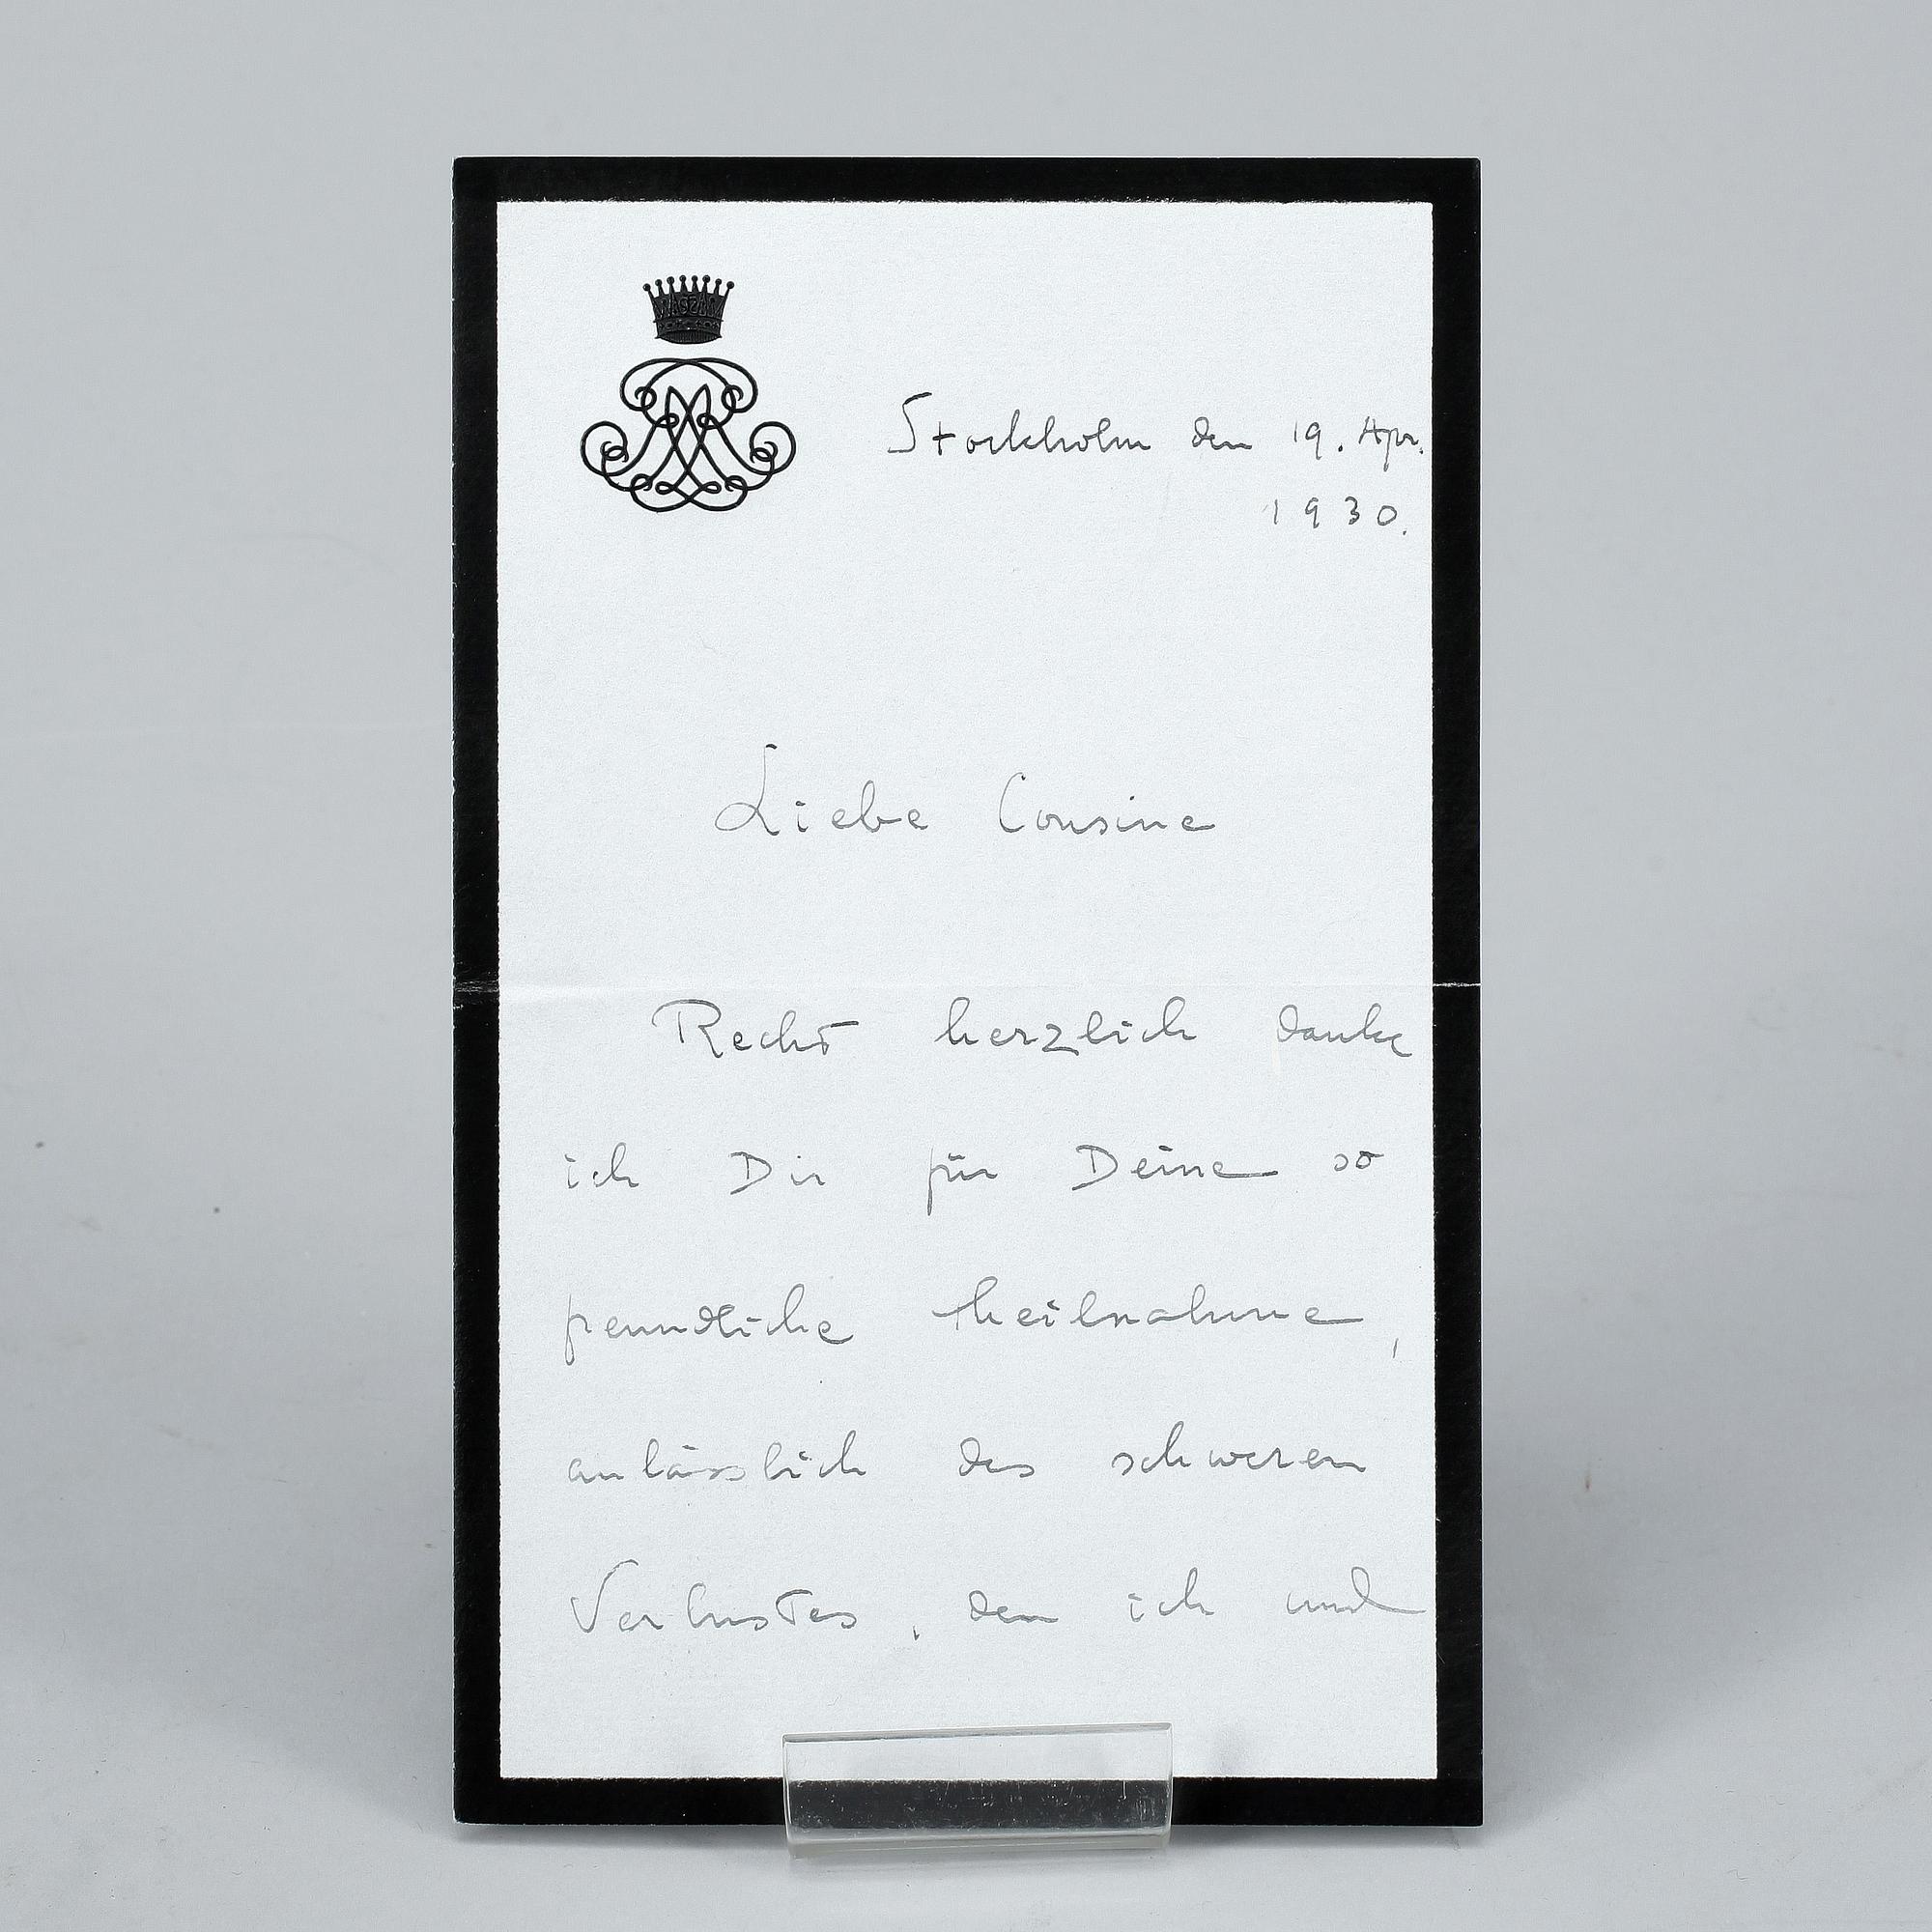 Stockholm den 19. Apr.
1930.
Liebe Cousine
Recht herzlich danke
ich Dir für Deine so
freundliche theilnahme,
anlässlich des schweren
Verlustes, den ich und